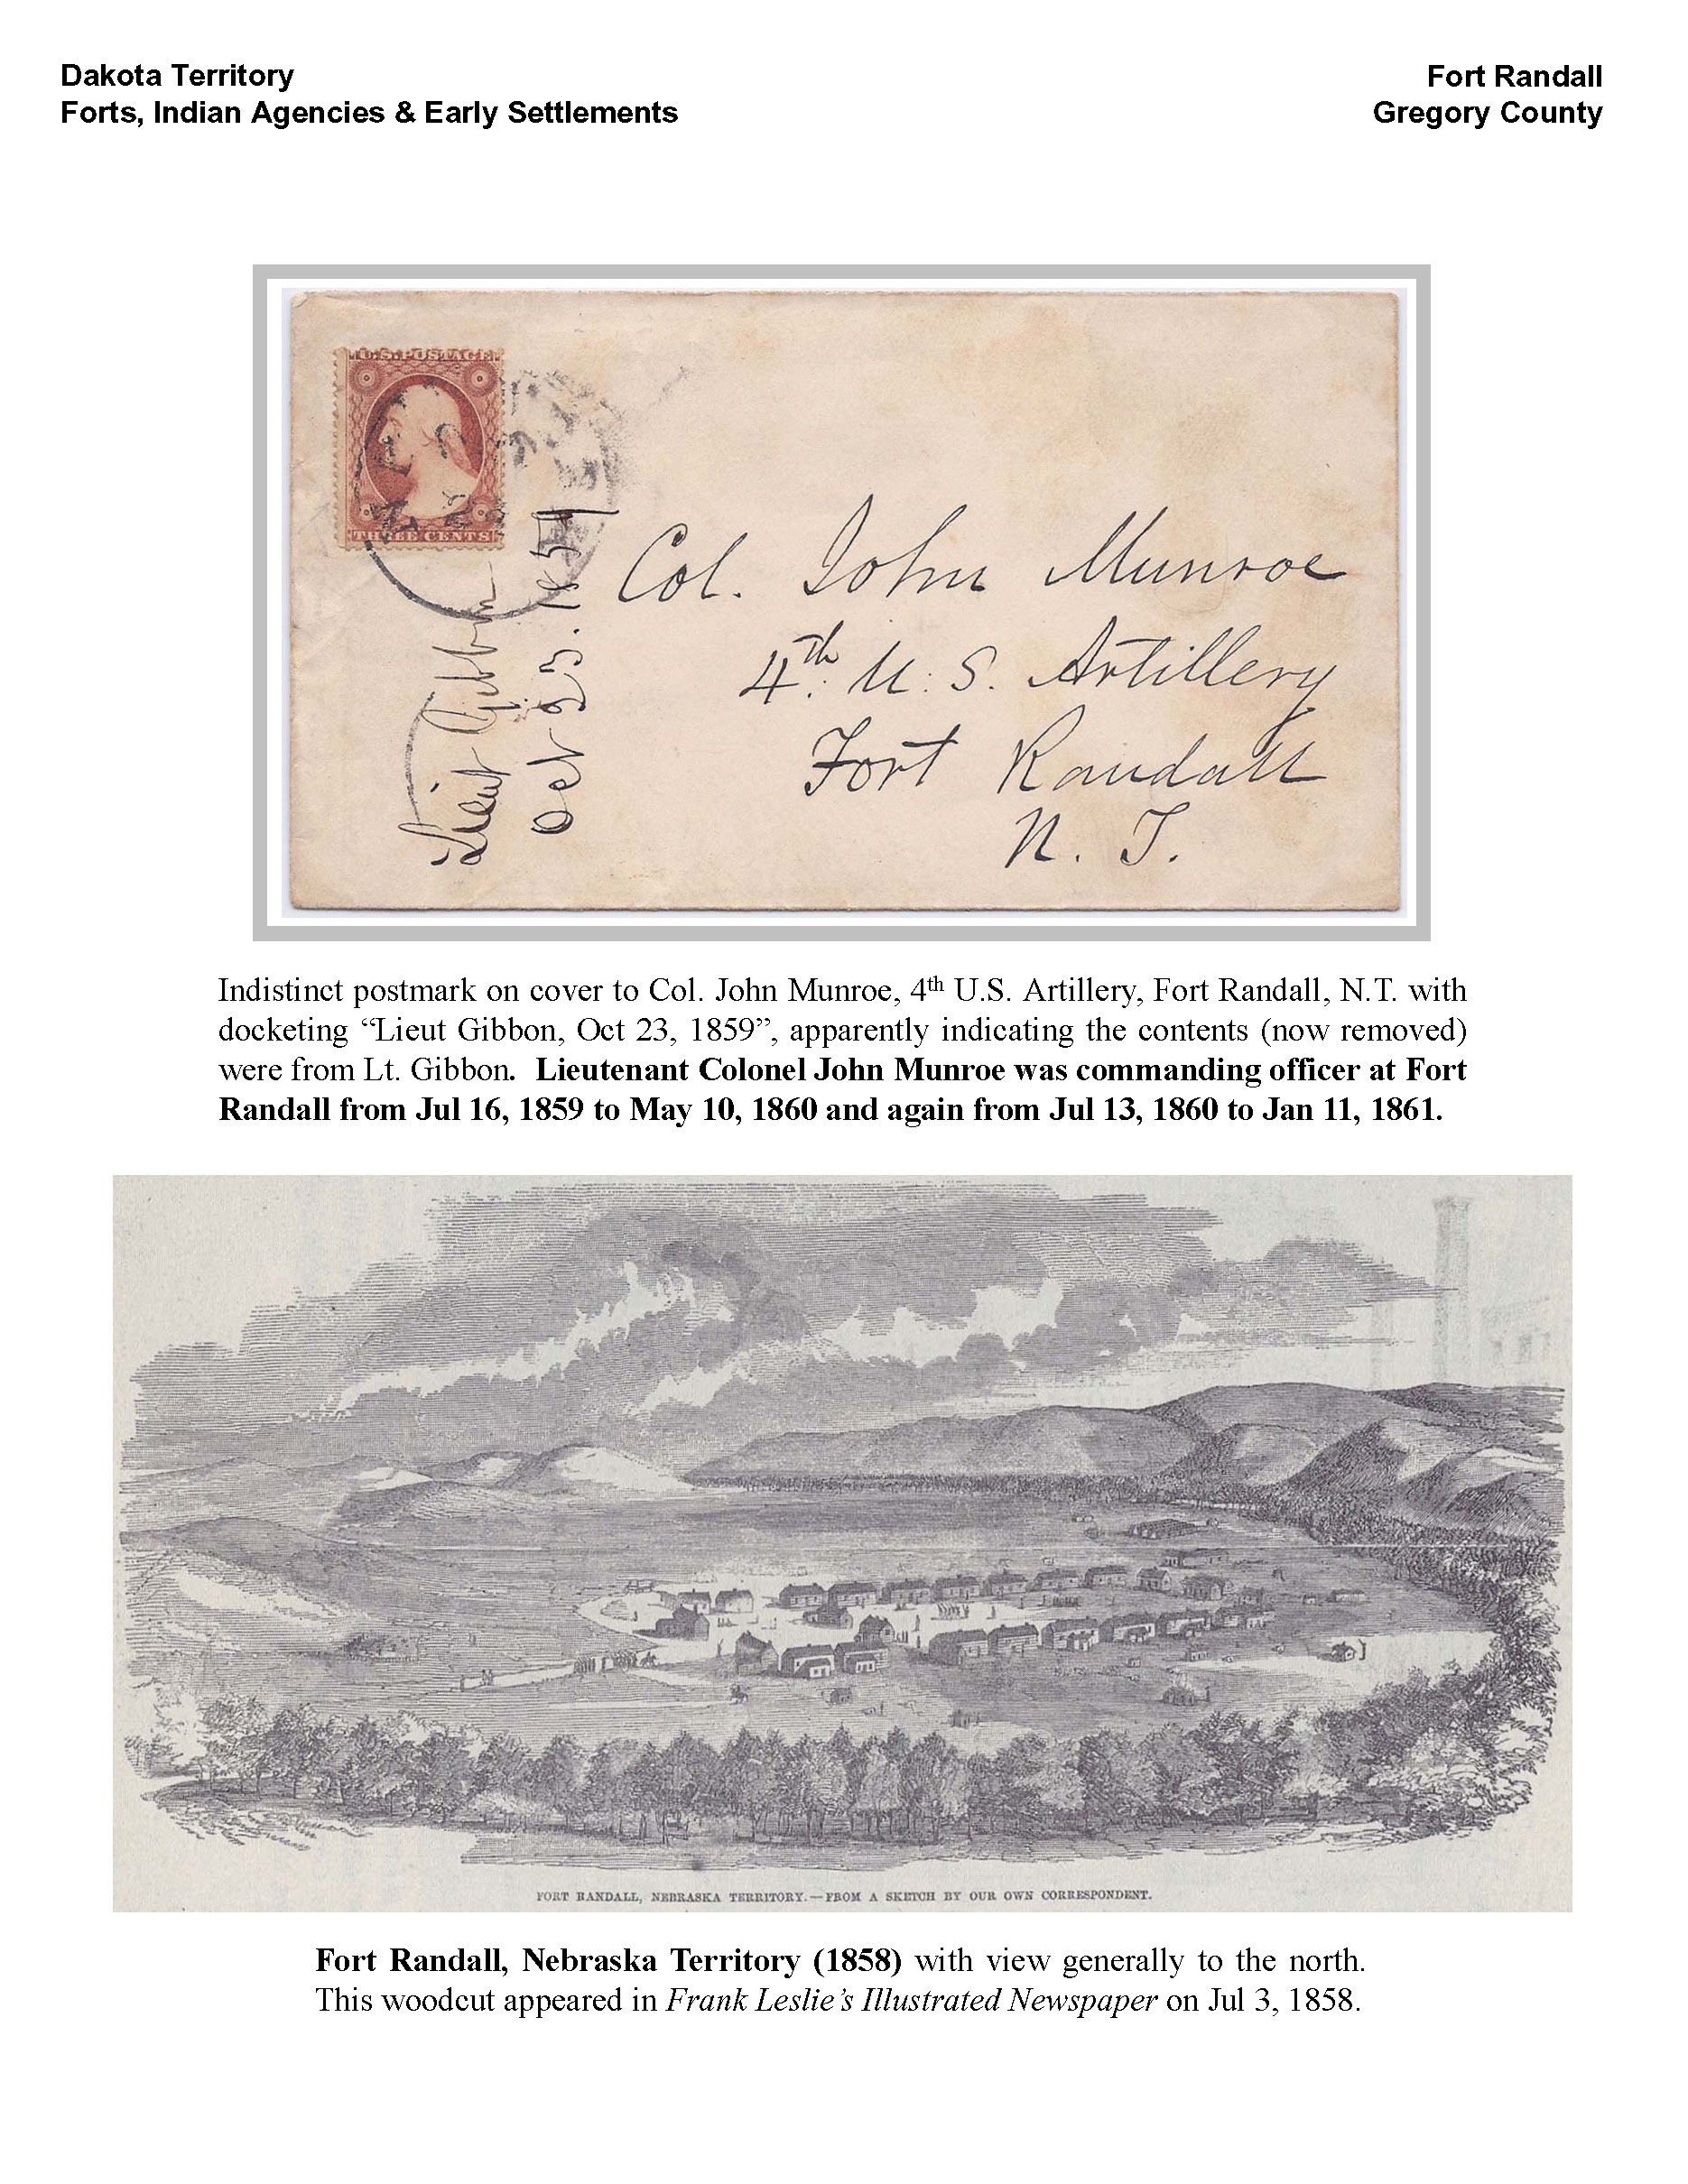 Dakota Territory
Forts, Indian Agencies & Early Settlements
Fort Randall
Gregory County
U.S. POSTAGE
THREE CENTS
Lieut Gibbon
Oct 23. 1859
Col. John Munroe
4th. U. S. Artillery
Fort Randall
N. T.
Indistinct postmark on cover to Col. John Munroe, 4th U.S. Artillery, Fort Randall, N.T. with
docketing “Lieut Gibbon, Oct 23, 1859”, apparently indicating the contents (now removed)
were from Lt. Gibbon. Lieutenant Colonel John Munroe was commanding officer at Fort
Randall from Jul 16, 1859 to May 10, 1860 and again from Jul 13, 1860 to Jan 11, 1861.
FORT RANDALL, NEBRASKA TERRITORY.—FROM A SKETCH BY OUR OWN CORRESPONDENT.
Fort Randall, Nebraska Territory (1858) with view generally to the north.
This woodcut appeared in Frank Leslie’s Illustrated Newspaper on Jul 3, 1858.